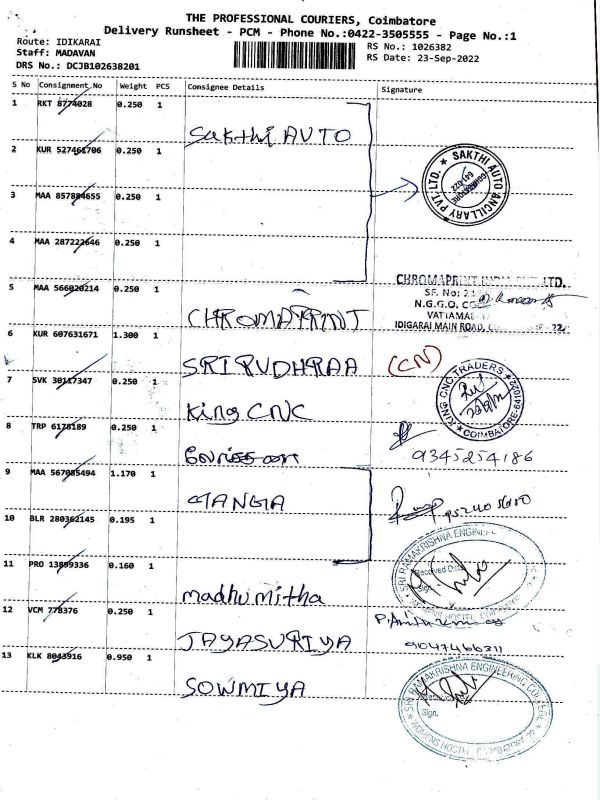 THE PROFESSIONAL COURIERS, Coimbatore
Delivery Runsheet - PCM - Phone No.:0422-3505555 - Page No.:1
Route: IDIKARAI
Staff: MADAVAN
DRS No.: DCJB102638201
RS No.: 1026382
RS Date: 23-Sep-2022
S No Consignment No Weight PCS Consignee Details Signature
1 RKT 8774028 0.250 1
Sakthi AUTO
2 KUR 527461706 0.250 1
SAKTHI AUTO ANCILLARY PVT. LTD.
COIMBATORE
641 022
3 MAA 857884655 0.250 1
4 MAA 287222646 0.250 1
5 MAA 566020214 0.250 1
CHROMAPRINT
CHROMAPRINT INDIA PVT. LTD.
SF. No:
N.G.G.O.
IDIGARAI MAIN ROAD,
6 KUR 607631671 1.300 1
SRI RUDHRAA (CN)
7 SVK 30117347 0.250 1
King CNC
KING CNC TRADERS
COIMBATORE-641022
8 TRP 6178189 0.250 1
9345254186
9 MAA 567085494 1.170 1
GANGA
10 BLR 280362145 0.195 1
SRI RAMAKRISHNA ENGINEE
Received Date
Sign.
WOMENS HOSTEL, COIMBATORE
11 PRO 13899336 0.160 1
madhumitha
12 VCM 778376 0.250 1
JAYASURIYA
9047466311
13 KLK 8043916 0.950 1
SOWMIYA
SRI RAMAKRISHNA ENGINEERING COLLEGE
Sign.
WOMENS HOSTEL, COIMBATORE-22